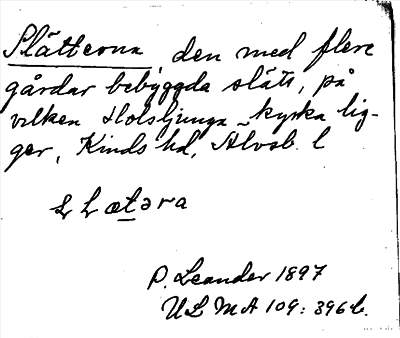 Slätterna, den med flere
gårdar bebyggda slätt, på
vilken Holsljunga kyrka lig-
ger, Kinds hd, Älvsb. l
P. Leander 1897
ULMA 109: 396 b.